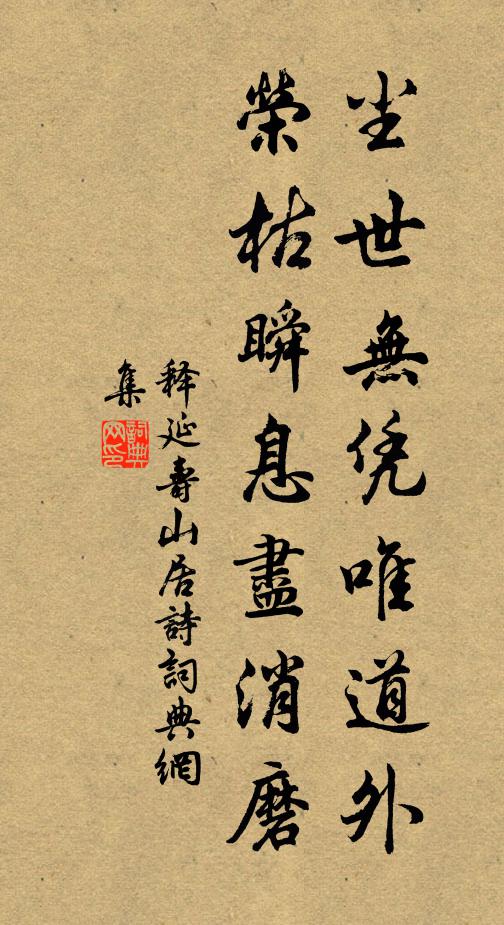 尘世無凭唯道外
榮枯瞬息盡消磨
释延壽山居詩詞典網
集
詞典
网印